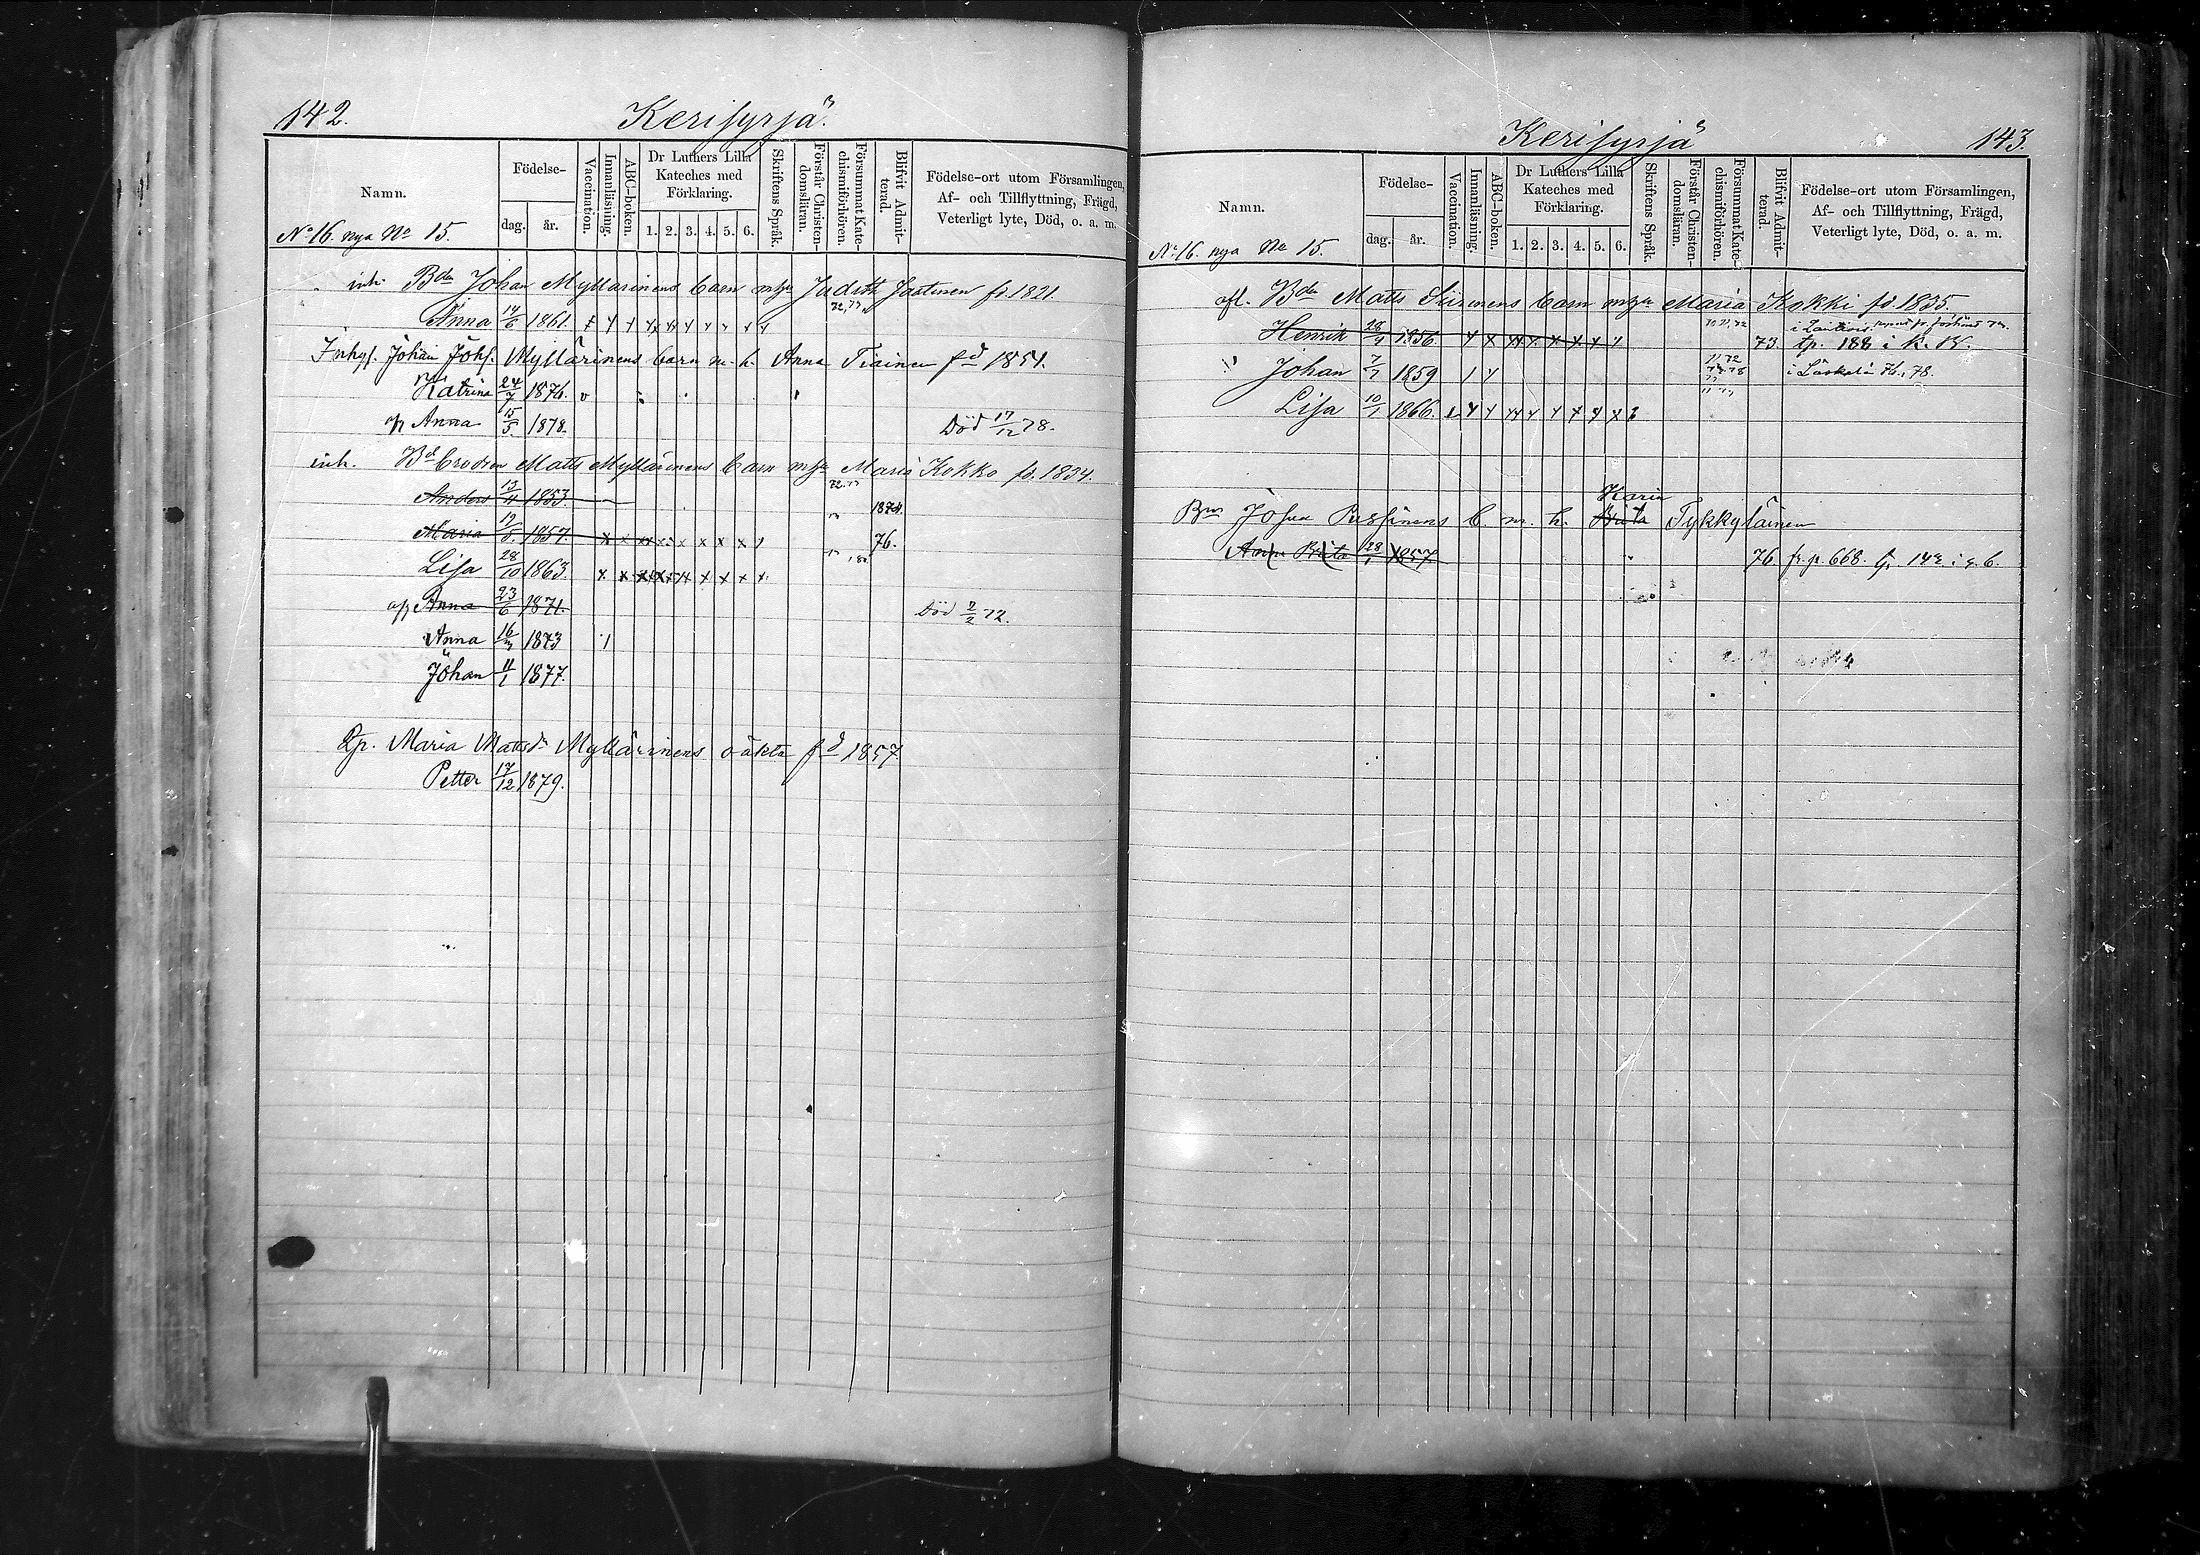 142. Kerisyrjä.
Namn.
Födelse-
dag. år.
Vaccination.
Innanläsning.
ABC-boken.
Dr Luthers Lilla Kateches med Förklaring.
1. 2. 3. 4. 5. 6.
Skriftens Språk.
Förstår Christendomsläran.
Försummat Katechismiförhören.
Blifvit Admitterad.
Födelse-ort utom Församlingen,
Af- och Tillflyttning, Frägd,
Veterligt lyte, Död, o. a. m.
No 16. nya No 15.
inh. Bdn Johan Myllärinens barn m hu Judith Jäntinen fd. 1821.
Anna 14/6 1861.
72, 77
Inhys. Johan Johs. Myllärinens barn m. h. Anna Tiainen fd 1854.
Katrina 24/7 1876. v
Anna 15/5. 1878. Död 17/12 78.
inh. Bd brodren Matts Myllärinens barn m hu Maria Kokko fd. 1834.
Anders 13/11 1853. 72. 1874.
Maria 1857. 76.
Lisa 28/10 1863.
Anna 23/6 1871. Död 2/2 72.
Anna 16/3 1873
Johan 11/1 1877.
Maria Mattsdr Myllärinens oäkta fd 1857.
Petter 17/12 1879.
Kerisyrjä 143.
Namn.
Födelse-
dag. år.
Vaccination.
Innanläsning.
ABC-boken.
Dr Luthers Lilla Kateches med Förklaring.
1. 2. 3. 4. 5. 6.
Skriftens Språk.
Förstår Christendomsläran.
Försummat Katechismiförhören.
Blifvit Admitterad.
Födelse-ort utom Församlingen,
Af- och Tillflyttning, Frägd,
Veterligt lyte, Död, o. a. m.
No 16. nya No 15.
afl. Bdn Matts Siironens barn m hu Maria Kokki fd. 1835.
Henrik 28/4 1856. 73. tp. 188 i K. B.
Johan 7/7 1859 i Läskelä 76, 78.
Lisa 10/1 1866.
Karin
Johan Pussinens b. m. h. Brita Tykkyläinen
Anna Brita 28/1 1857. 76 fr. p. 668.